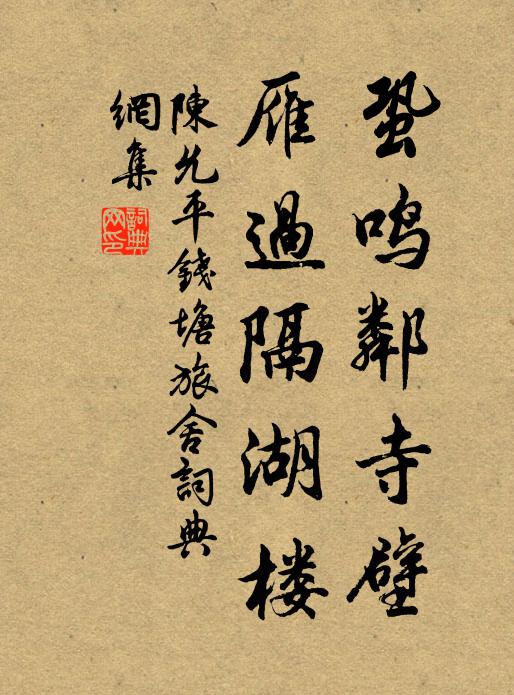 蛩鸣鄰寺壁
雁過隔湖楼
陳允平錢塘旅舍詞典
網集
詞典網印